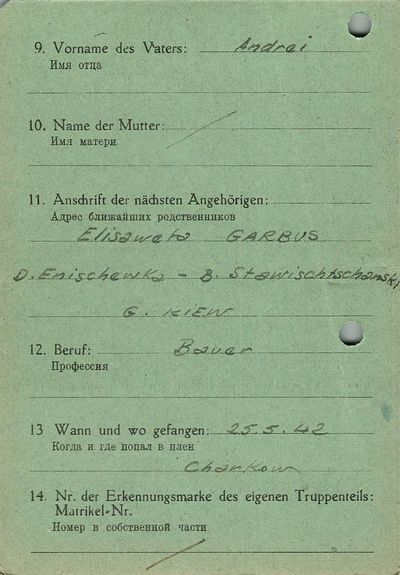 9. Vorname des Vaters: Andrei
Имя отца
10. Name der Mutter:
Имя матери
11. Anschrift der nächsten Angehörigen:
Адрес ближайших родственников
Elisaweta GARBUS
D. Enischewka - B. Stawischtschanski,
G. KIEW
12. Beruf: Bauer
Профессия
13 Wann und wo gefangen: 25.5.42
Когда и где попал в плен
Charkow
14. Nr. der Erkennungsmarke des eigenen Truppenteils:
Matrikel-Nr.
Номер в собственной части